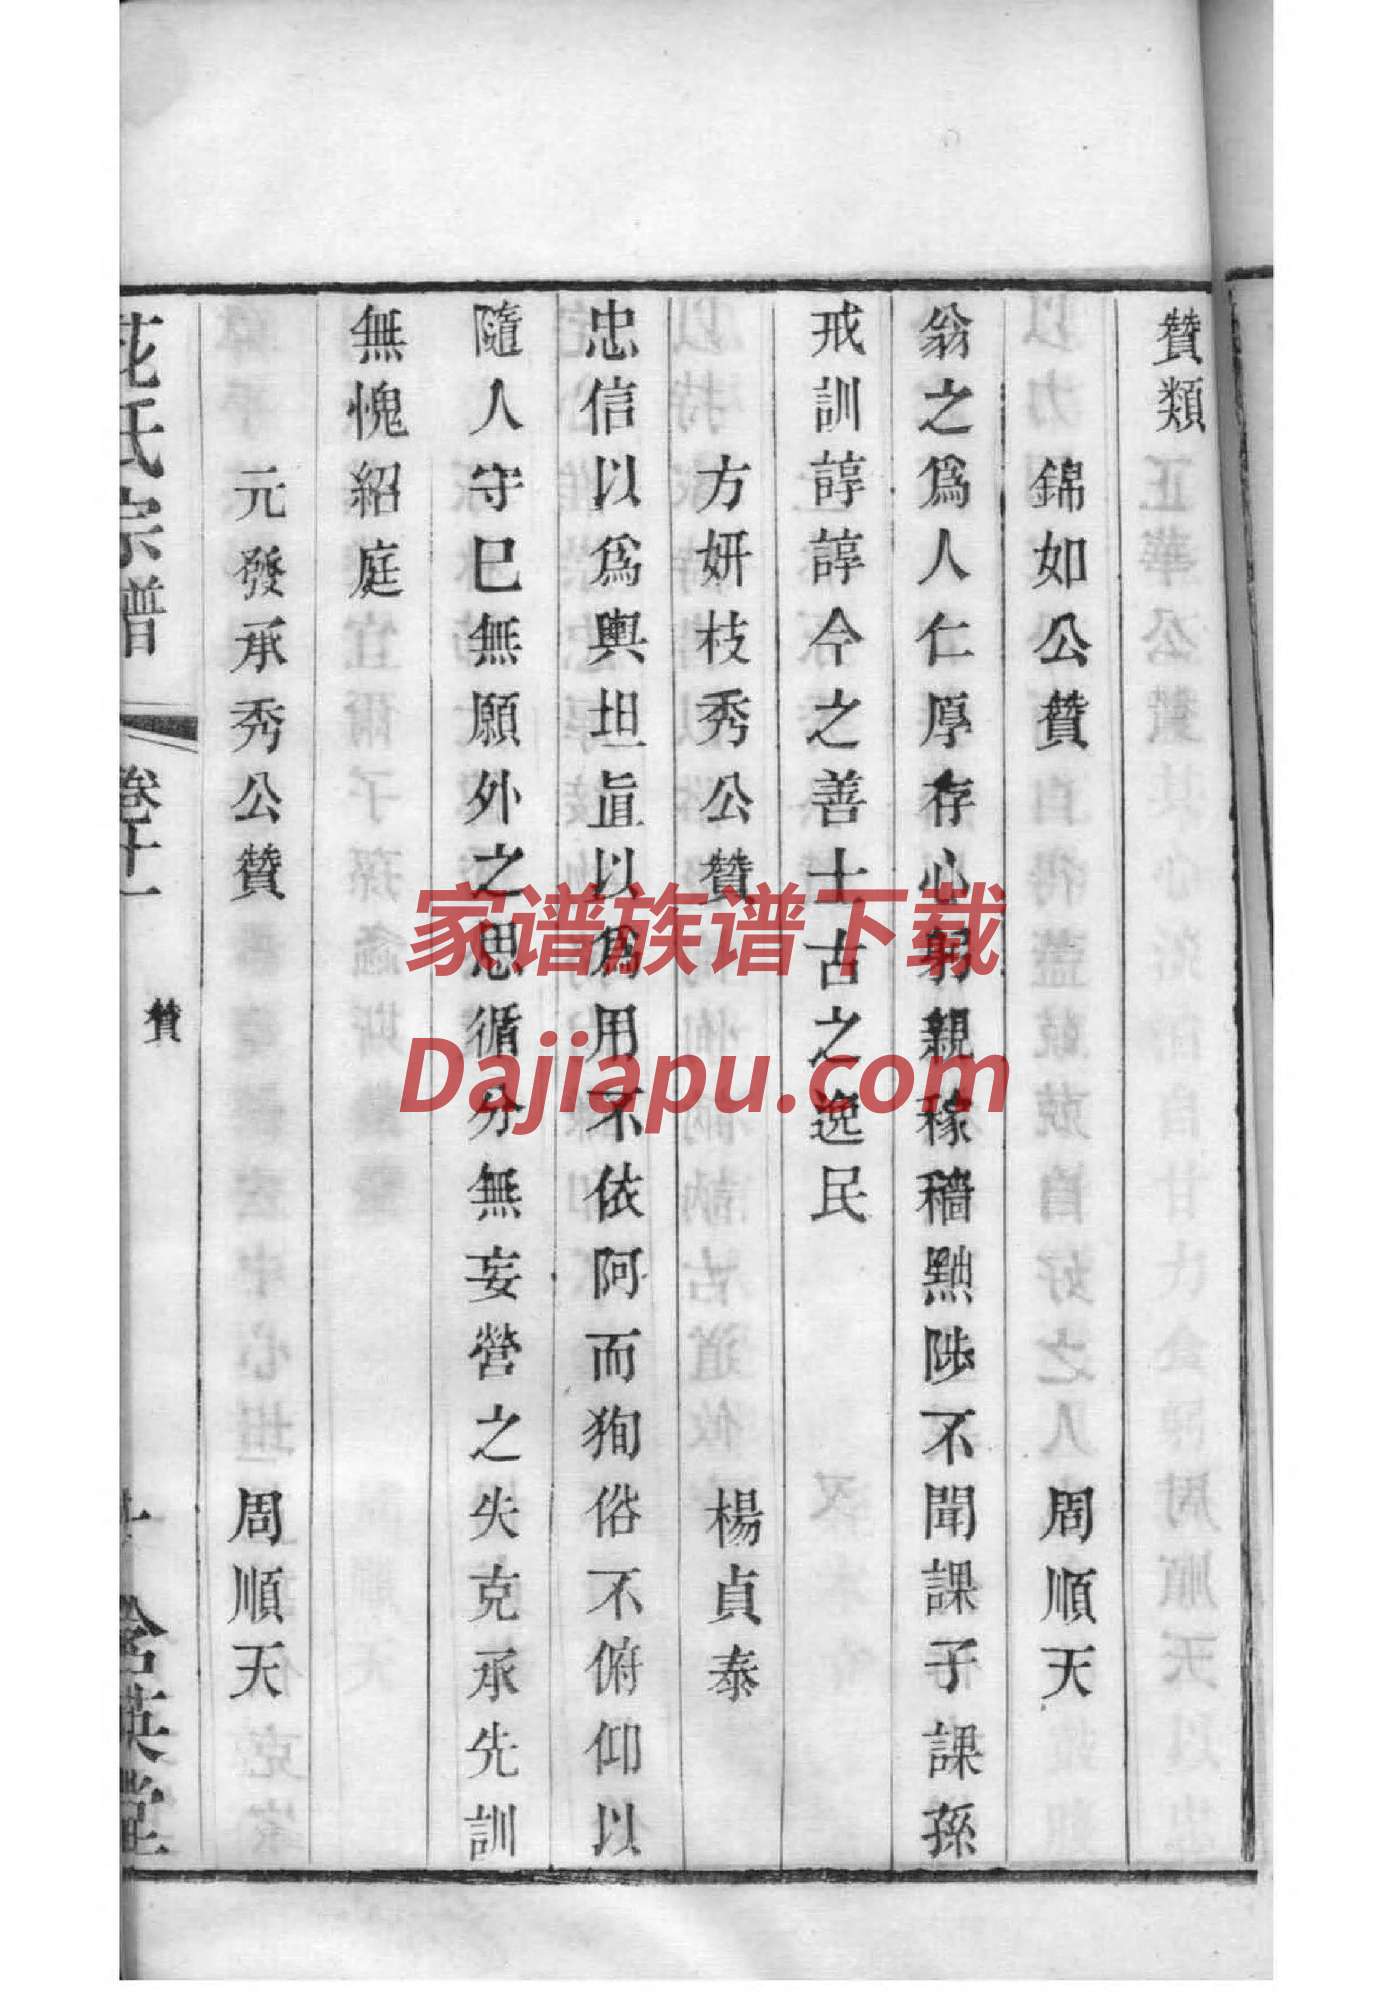 贊類
錦如公贊　周順天
翁之爲人仁厚存心躬親稼穡黜陟不聞課子課孫
戒訓諄諄今之善士古之逸民
方妍枝秀公贊　楊貞泰
忠信以爲輿坦直以爲用不依阿而狥俗不俯仰以
隨人守巳無願外之思循分無妄營之失克承先訓
無愧紹庭
元發承秀公贊　周順天
花氏宗譜　卷十一　贊　含英堂
家谱族谱下载
Dajiapu.com